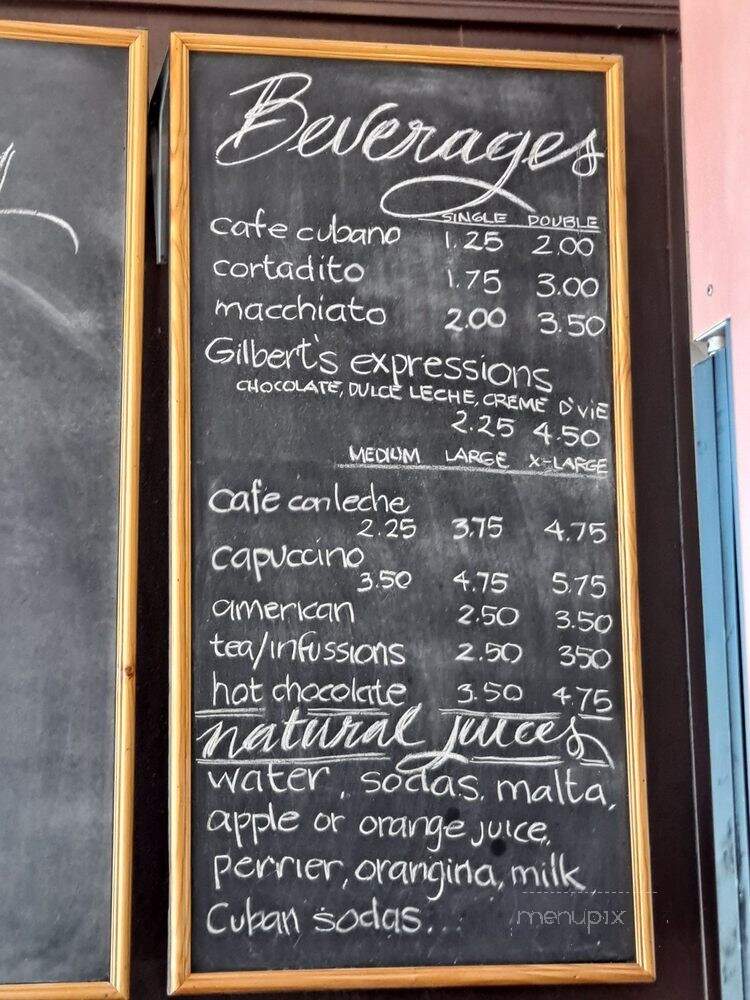 Beverages
SINGLE DOUBLE
cafe cubano 1.25 2.00
cortadito 1.75 3.00
macchiato 2.00 3.50
Gilbert's expressions
CHOCOLATE, DULCE LECHE, CREME D'VIE
2.25 4.50
MEDIUM LARGE X-LARGE
cafe con leche
2.25 3.75 4.75
capuccino
3.50 4.75 5.75
american 2.50 3.50
tea/infussions 2.50 350
hot chocolate 3.50 4.75
natural juices
water, sodas, malta,
apple or orange juice,
perrier, orangina, milk
Cuban sodas...
menupix